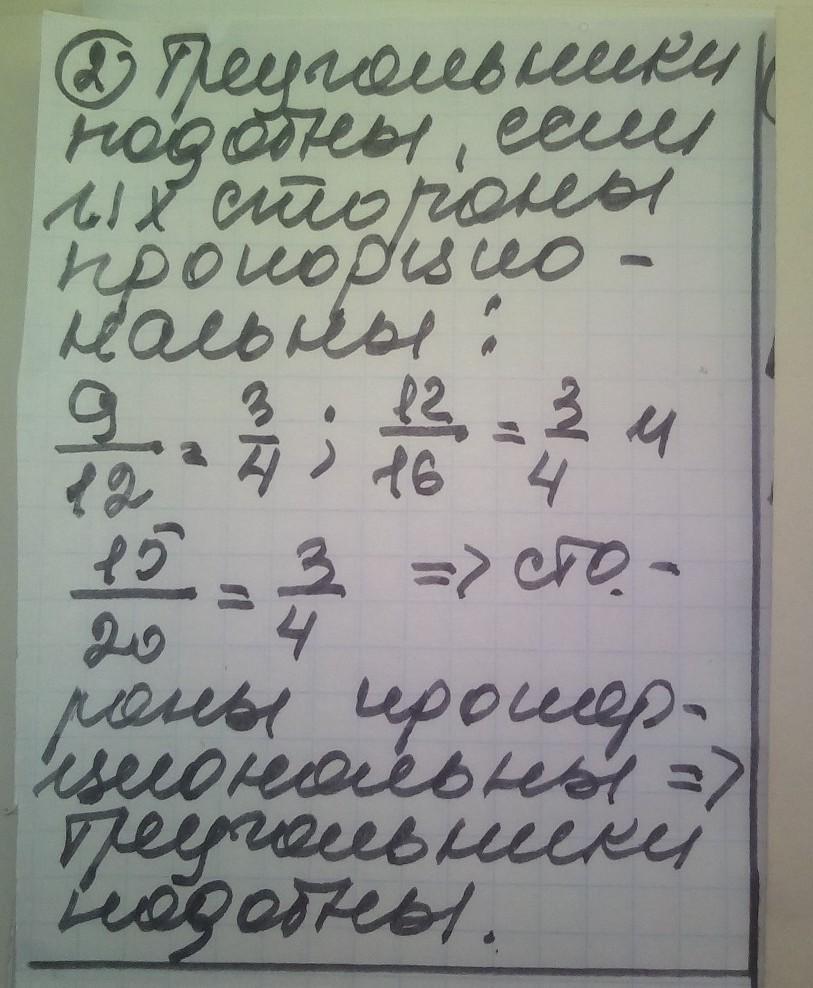 ② Треугольники
подобны, если
их стороны
пропорцио -
нальны :
9/12 = 3/4 ; 12/16 = 3/4 и
15/20 = 3/4 => сто -
роны пропор-
циональны =>
треугольники
подобны.